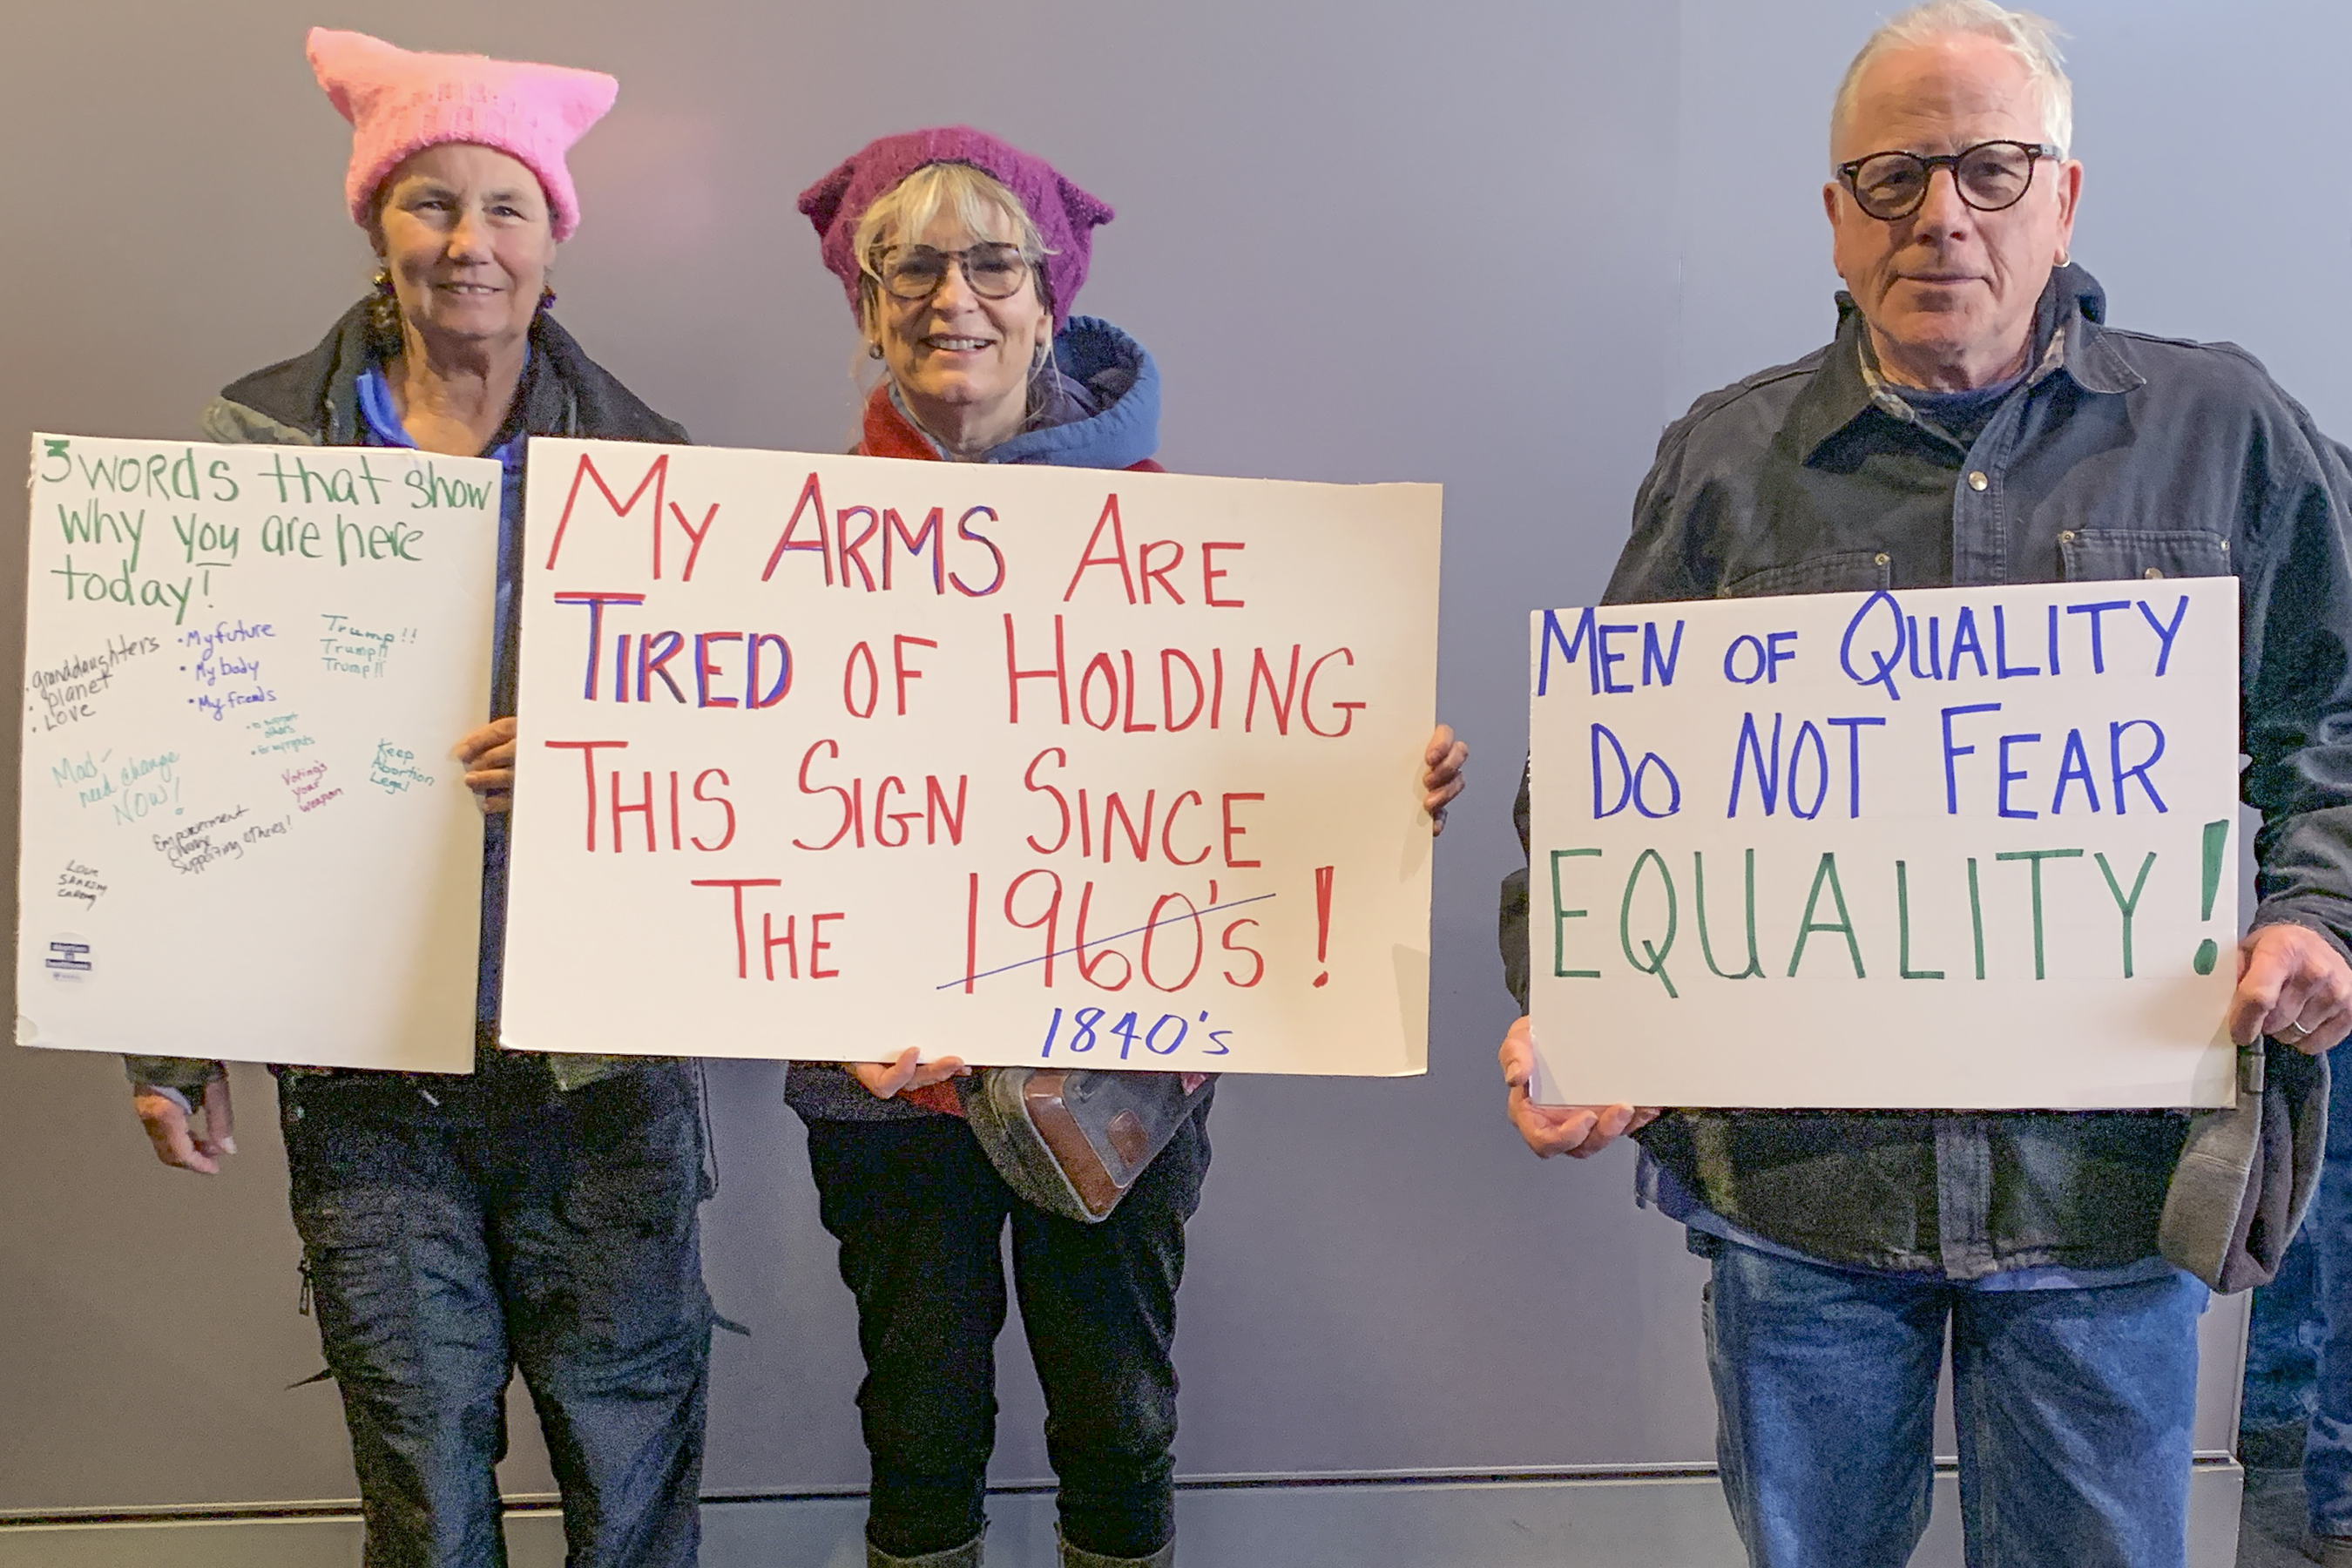 3 WORds that show
why you are here
today!
• granddaughters
• planet
• Love
• My future
• My body
• My friends
Trump!!
Trump!!
Trump!!
Mad-
need change
NOW!
• to support
others
• for my rights
Voting's
your
weapon
Keep
Abortion
Legal
Empowerment
Change
Supporting others!
Love
SHARING
CARING
MY ARMS ARE
TIRED OF HOLDING
THIS SIGN SINCE
THE 1960'S!
1840's
MEN OF QUALITY
DO NOT FEAR
EQUALITY!